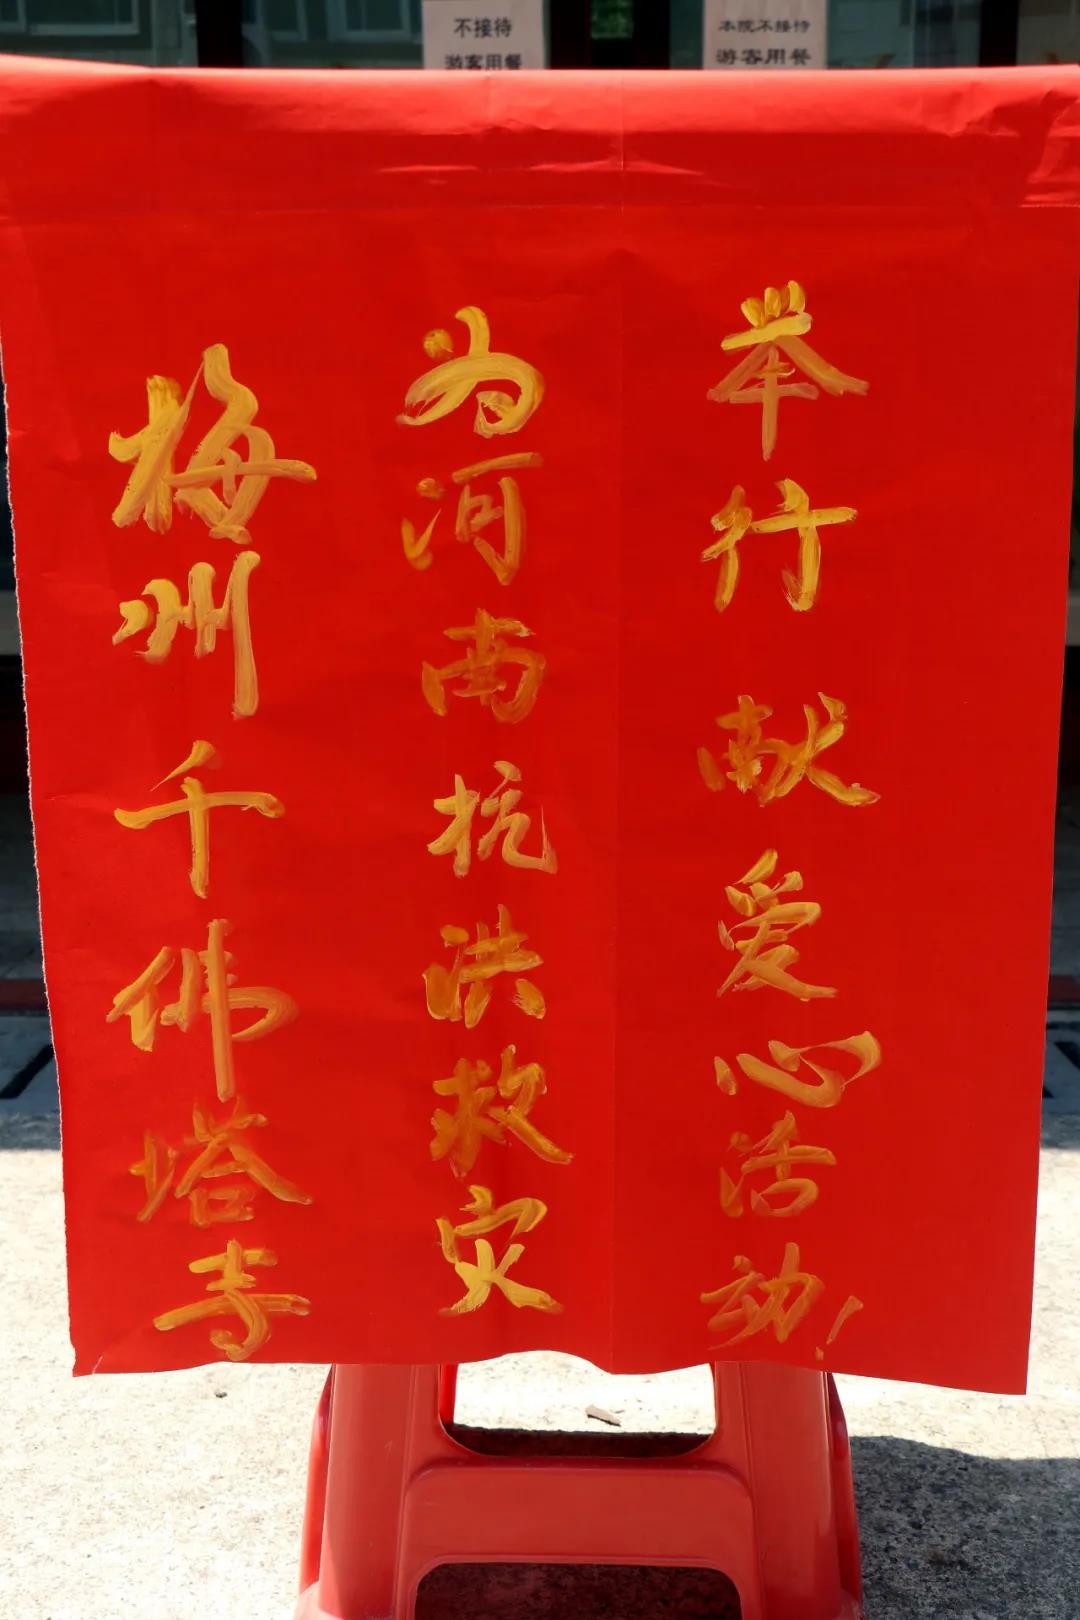 不接待
游客用餐
本院不接待
游客用餐
梅州千佛塔寺
为河南抗洪救灾
举行献爱心活动!